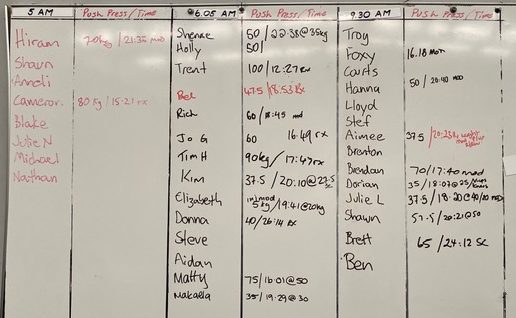 5 AM Push Press/Time
Hiram 70kg / 21:35 mod
Shawn
Anneli
Cameron. 80 kg / 15:21 rx
Blake
Julie N
Michael
Nathan
6.05 AM Push Press/Time
50 / 22:38@35kg
Holly 50/
Trent 100 / 12:27 Rx
Bel 47.5 / 18:53 Rx
Rich 60 / 18:45 mod
Jo G 60 16:49 rx
Tim H 90kg / 17:47 rx
Kim 37.5 / 20:10@27.5 sc
Elizabeth 5kg / 19:41@20kg
Donna 40 / 26:14 Rx
Steve
Aidan
Matty 75 / 16:01@50
Makaela 35 / 19:29@30
9.30 AM Push Press/Time
Troy
Foxy 16.18 mod
Courts
Hanna 50 / 20:40 mod
Lloyd
Stef
Aimee 37.5
Brenton
Brendan 70 / 17:40 mod
Dorian 35 / 18:07@25
Julie L 37.5 / 18:20@40/20 mod
Shawn 57.5 / 20:21@50
Brett 65 / 24:12 SC
Ben